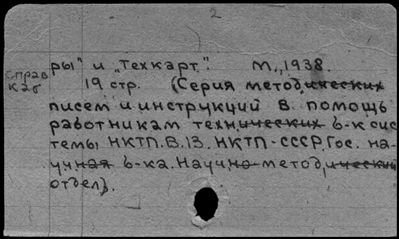 2
ры" и "Техкарт". М., 1938.
справ 19 стр. (Серия методических
каб писем и инструкций в помощь
работникам технических б-к сис
темы НКТП. В.13. НКТП-СССР, Гос. на-
учная б-ка. Научно-методический
отдел).